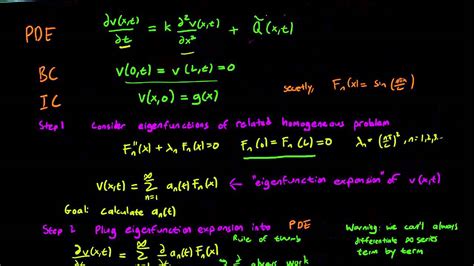 PDE ∂v(x,t)/∂t = k ∂²v(x,t)/∂x² + Q̃(x,t)
BC v(0,t) = v(L,t) = 0
secretly, Fₙ(x) = sin(nπx/L)
IC v(x,0) = g(x)
Step 1 Consider eigenfunctions of related homogeneous problem
Fₙ''(x) + λₙ Fₙ(x) = 0 Fₙ(0) = Fₙ(L) = 0 λₙ = (nπ/L)², n=1,2,3...
v(x,t) = ∑ₙ₌₁^∞ aₙ(t) Fₙ(x) ← "eigenfunction expansion" of v(x,t)
Goal: calculate aₙ(t)
Step 2 Plug eigenfunction expansion into PDE
Rule of thumb
Warning: we can't always
differentiate ∞ series
term by term
∂v(x,t) = ∑^∞ ∂ aₙ(t) Fₙ(x)
always work